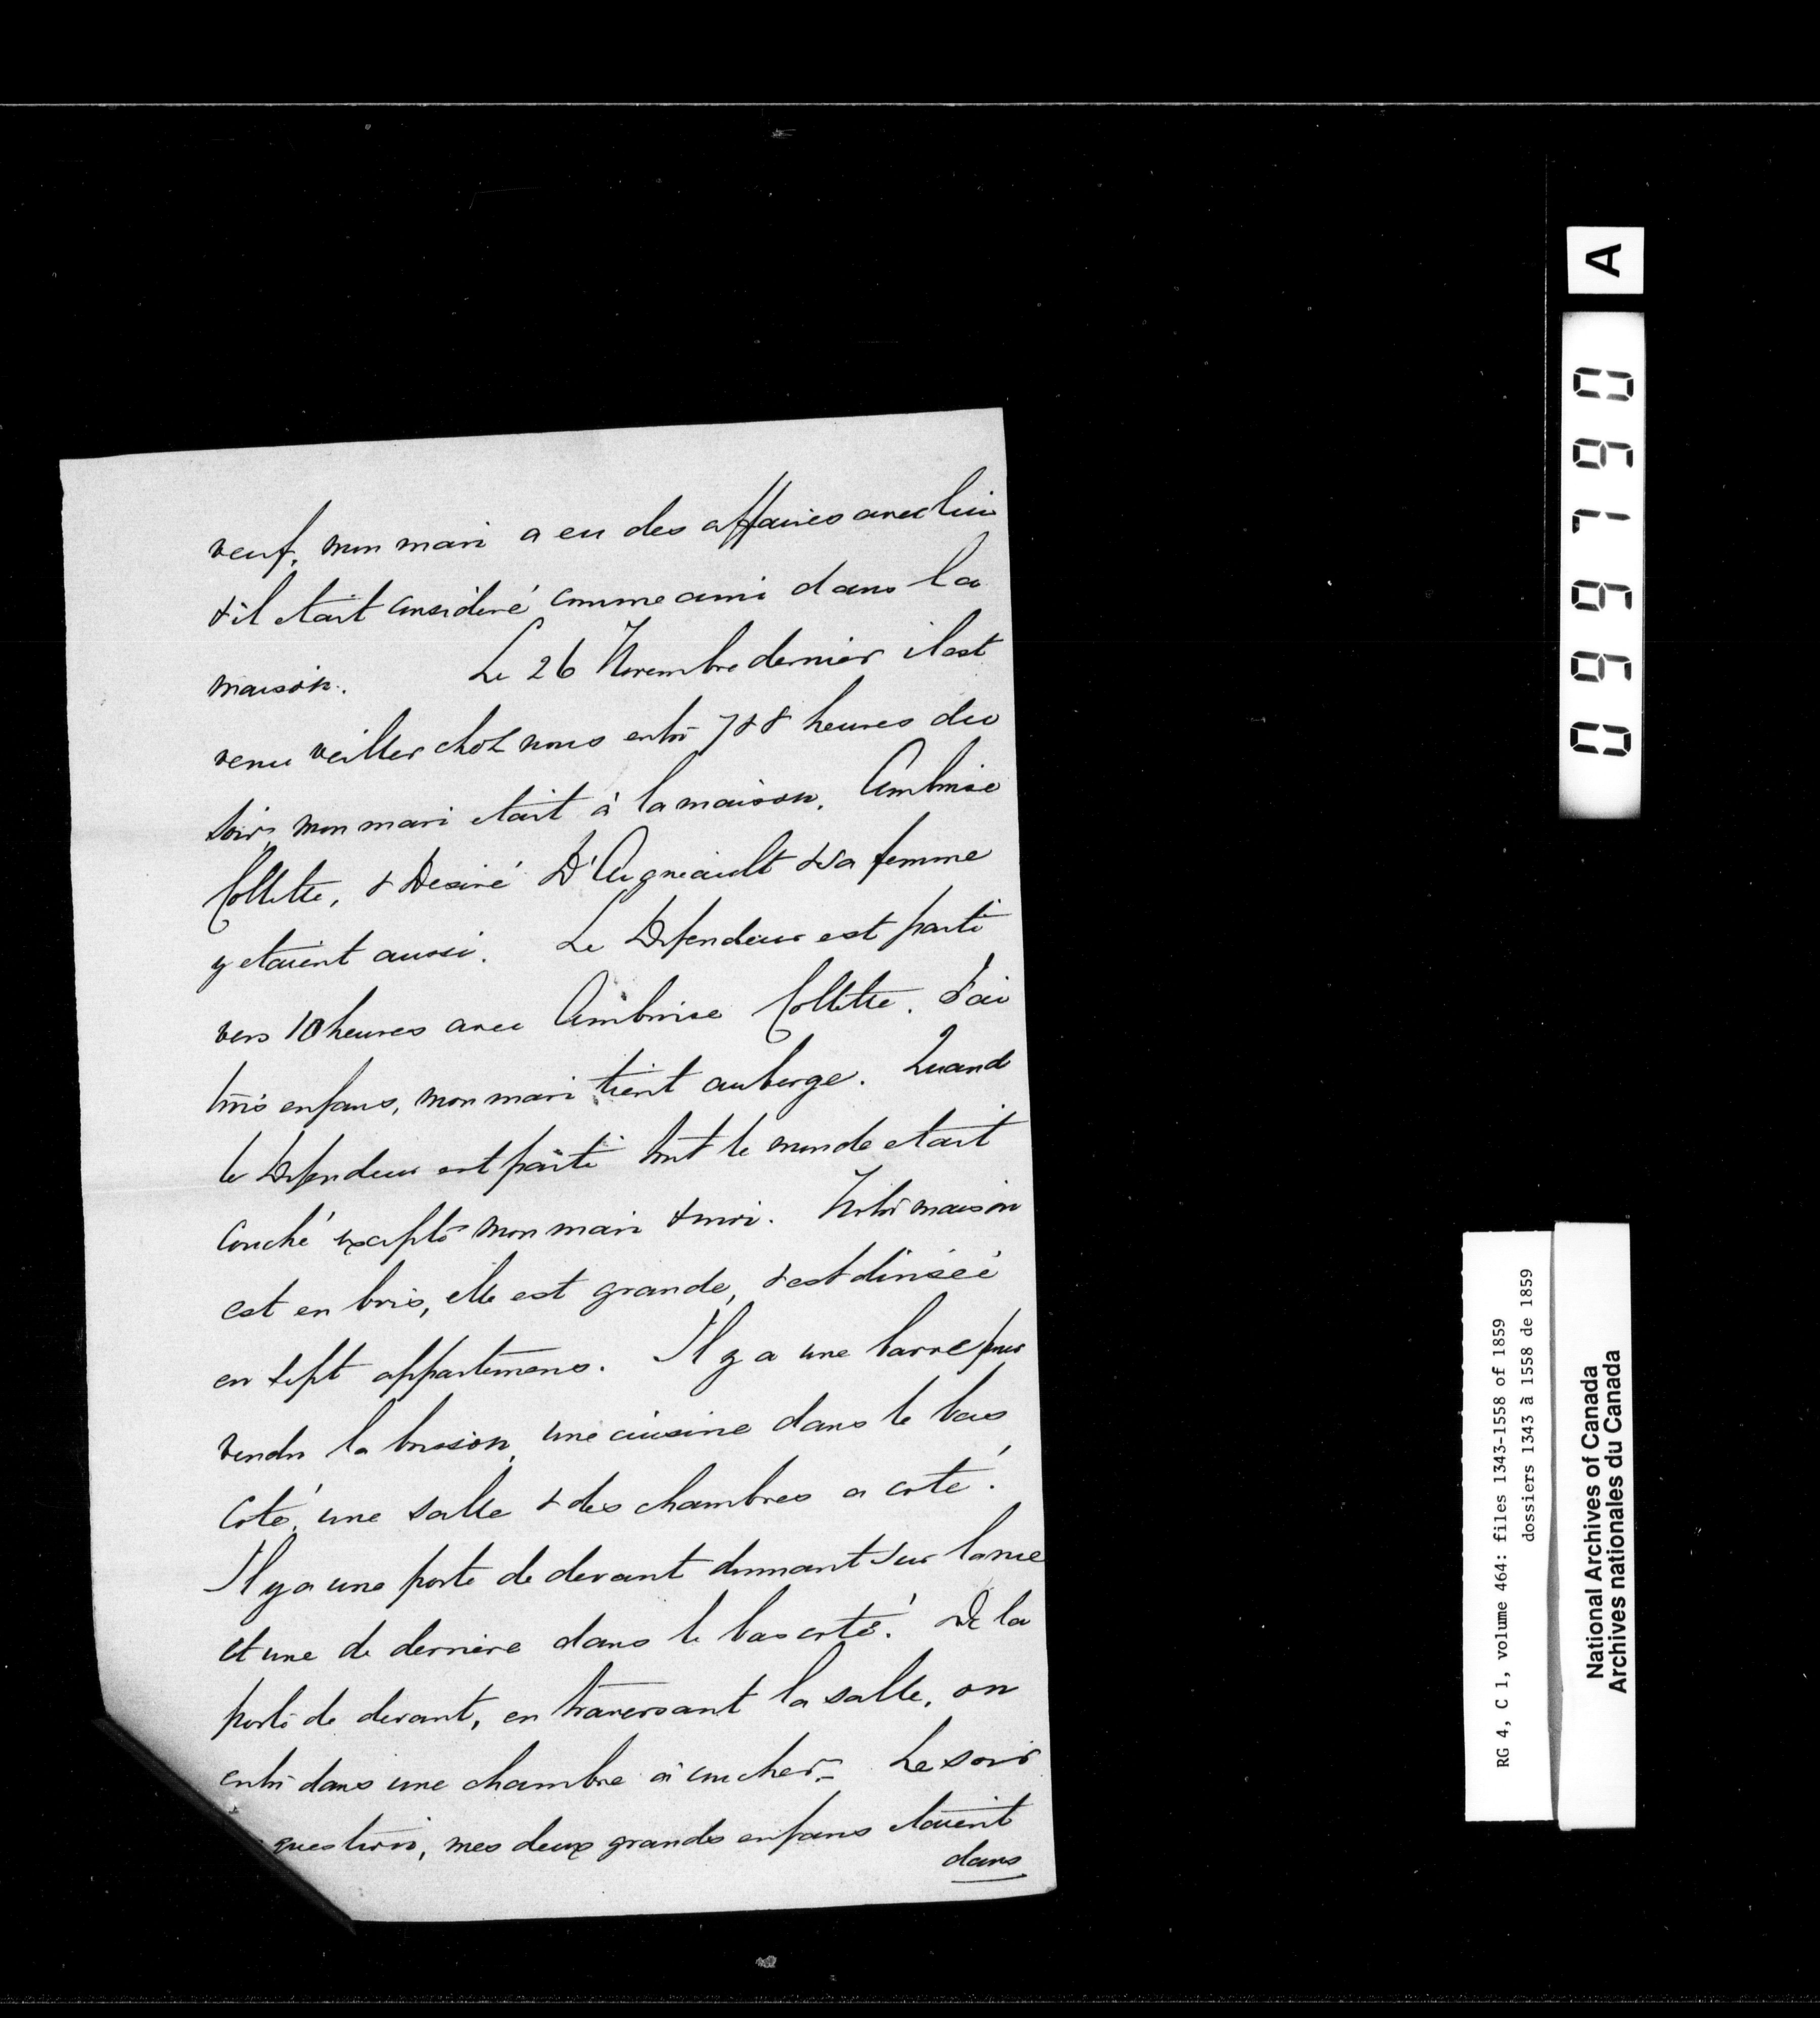 veuf, mon mari a eu des affaires avec lui
& il etait consideré comme ami dans la
maison. Le 26 Novembre dernier il est
venu veiller chez nous entre 7 & 8 heures du
soir, mon mari etait à la maison. Ambroise
Collette, & Desiré D'Aigneault & sa femme
y etaient aussi. Le Defendeur est parti
vers 10 heures avec Ambroise Collette. J'ai
trois enfans, mon mari tient auberge. Quand
le Defendeur est parti tout le monde etait
couché excepté mon mari & moi. Notre maison
est en bois, elle est grande, & est divisée
en sept appartemens. Il y a une barre pour
vendre la boisson, une cuisine dans le bas
coté, une salle & des chambres a coté.
Il y a une porte de devant donnant sur la rue
et une de derriere dans le bas coté. De la
porte de devant, en traversant la salle, on
entre dans une chambre à coucher. Le soir
question, mes deux grands enfans etaient
dans
A
0667990
RG 4, C 1, volume 464: files 1343-1558 of 1859
dossiers 1343 à 1558 de 1859
National Archives of Canada
Archives nationales du Canada